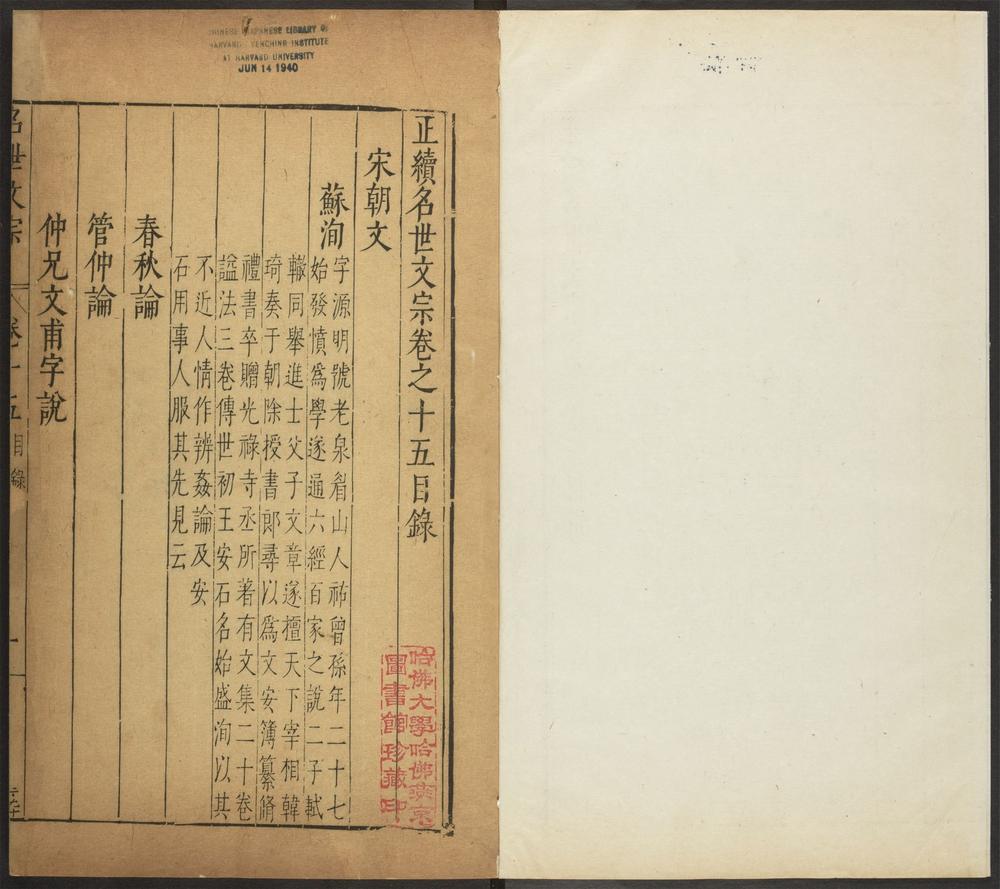 CHINESE JAPANESE LIBRARY OF
HARVARD YENCHING INSTITUTE
AT HARVARD UNIVERSITY
JUN 14 1940
正續名世文宗卷之十五目錄
宋朝文
蘇洵
字源明號老泉眉山人祐曾孫年二十七
始發憤爲學遂通六經百家之說二子軾
轍同舉進士父子文章遂擅天下宰相韓
琦奏于朝除授書郎尋以爲文安簿纂脩
禮書卒贈光祿寺丞所著有文集二十卷
謚法三卷傳世初王安石名始盛洵以其
不近人情作辨姦論及安
石用事人服其先見云
春秋論
管仲論
仲兄文甫字說
名世文宗
卷十五目錄
一
哈佛大學哈佛燕京
圖書館珍藏印